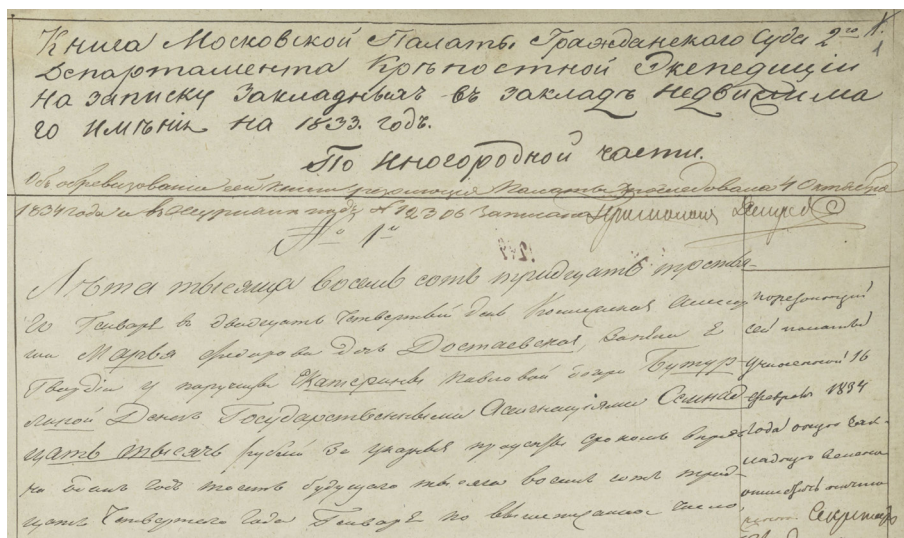 Книга Московской Палаты Гражданскаго Суда 2го
Департамента Крѣпостной Экспедиціи
на записку Закладныхъ въ закладъ недвижима
го имѣнія на 1833. годъ.
1
По иногородной части.
сей книги Палаты 4 Октября
1834 года и в Журналѣ подъ № 12306 записана
№ 1й
Лѣта тысяща восемь сотъ тридцать третья-
го Генваря въ двадцать четвертый день Колежская Асесор
ша Марья Федорова дочь Достаевская, заняла я
Гвардіи у порутчицы Екатерины Павловой дочери Бутур-
линой Денегъ Государственными Асигнаціями Осмнад
цать тысячъ рублей за указныя проценты срокомъ впредь
на одинъ годъ то есть будущаго тысяща восемь сотъ трид
цать Четвертаго Года Генваря по вышеписанное число,
по резолюціи
сей палаты
учиненной 16
февраля 1834
года оную зак-
ладную
Секретарь